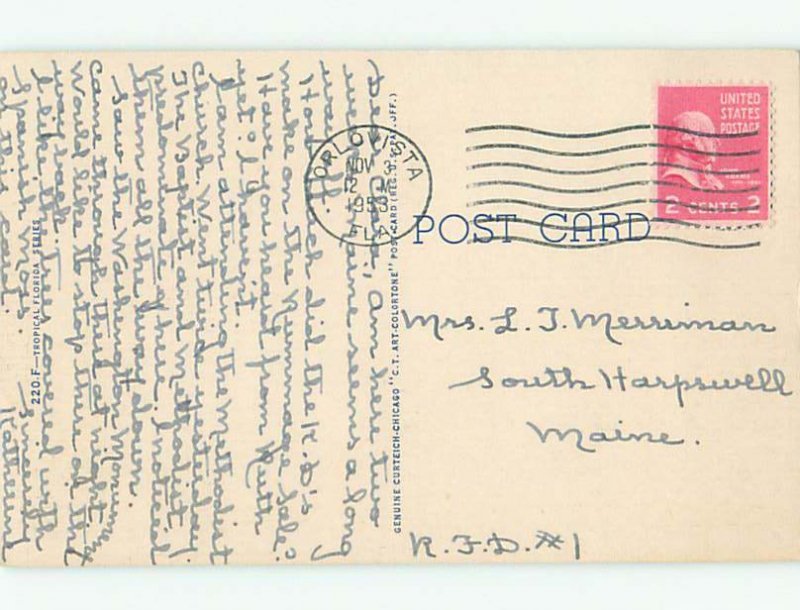 Dear Clara; Am here two
weeks. Maine seems a long
way off.
How much did the K.D's
make on the Rummage Sale?
Have you heard from Ruth
yet? I haven't.
I am attending the Methodist
Church. Went twice yesterday.
The Baptist and Methodist
predominate here. I noticed
all the way down.
Saw the Washington Monument
came through that at night.
Would like to stop there on the
way back.
I like the trees covered with
Spanish Moss. Sincerely
on this card. Katherine
220-F—TROPICAL FLORIDA SERIES
GENUINE CURTEICH-CHICAGO "C.T. ART-COLORTONE" POST CARD (REG. U.S. PAT. OFF.)
ORLOVISTA
NOV 3
12 M
1953
FLA.
UNITED
STATES
POSTAGE
2 CENTS 2
POST CARD
Mrs. L. J. Merriman
South Harpswell
Maine.
R.F.D. #1